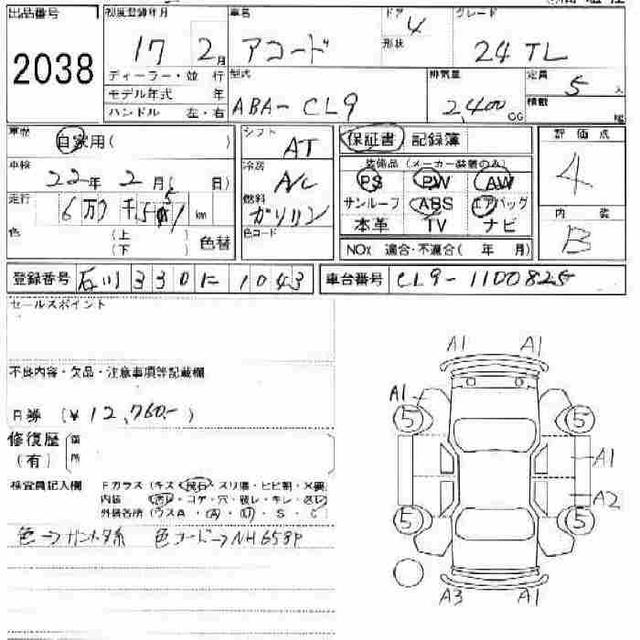 出品番号 初度登録年月 車名 ドア 4 グレード
2038 17 2月 アコード 形状 24TL
ディーラー・並 行 型式 排気量 定員 5人
モデル年式 年 ABA-CL9 2,400cc 積載
ハンドル 左・右
車歴 自家用( ) シフト AT 保証書 記録簿 評価点
車検 22年2月( 日) 冷房 A/C 装備品(メーカー装着のみ) 4
走行 km 燃料 ガソリン PS PW AW
サンルーフ ABS エアバッグ 内装
色 (上 (下 ) 色替 色コード 本革 TV ナビ B
NOx 適合・不適合( 年 月)
登録番号 石川 330 1043 車台番号 CL9-1100825
セールスポイント
不良内容・欠品・注意事項等記載欄
A1 A1
R券 (¥12,760.-)
A1
5 5
修復歴
(有)
A1
検査員記入欄 Fガラス(キズ・飛石・スリ傷・ヒビ割・X要
内装
A2
外装各所
5 5
色コード→NH658P
A3 A1